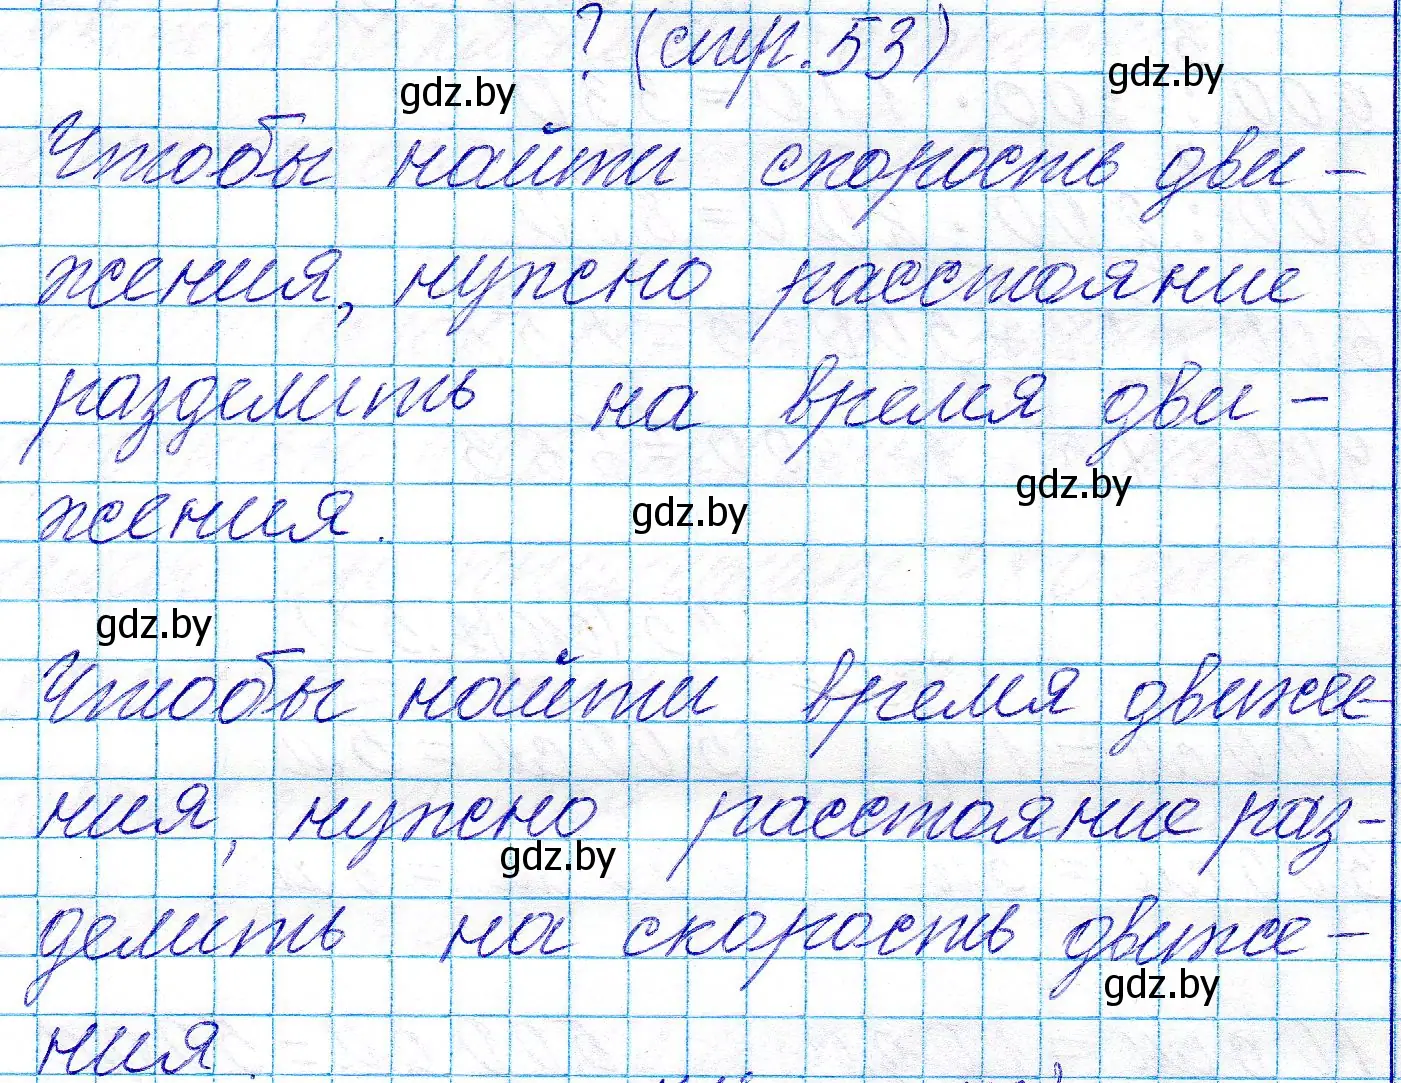 ? (стр. 53)
gdz.by gdz.by
Чтобы найти скорость дви-
жения, нужно расстояние
разделить на время дви-
gdz.by
жения. gdz.by
gdz.by
Чтобы найти время движе-
ния, нужно расстояние раз-
gdz.by
делить на скорость движе-
gdz.by
ния.